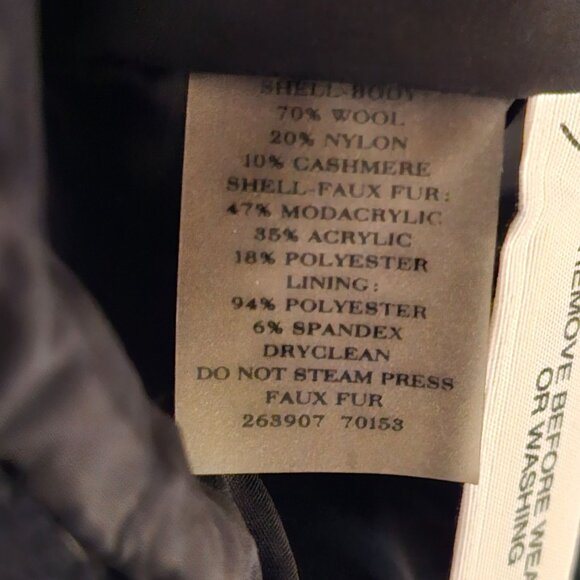 SHELL-BODY
70% WOOL
20% NYLON
10% CASHMERE
SHELL-FAUX FUR:
47% MODACRYLIC
35% ACRYLIC
18% POLYESTER
LINING:
94% POLYESTER
6% SPANDEX
DRYCLEAN
DO NOT STEAM PRESS
FAUX FUR
263907 70153
REMOVE BEFORE WEA
OR WASHING